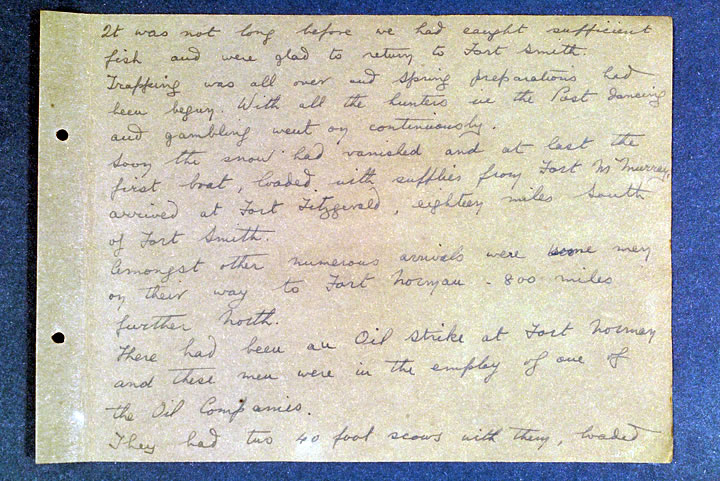 It was not long before we had caught sufficient
fish and were glad to return to Fort Smith.
Trapping was all over and Spring preparations had
been begun. With all the hunters in the Post dancing
and gambling went on continuously.
Soon the snow had vanished and at last the
first boat, loaded with supplies from Fort McMurray,
arrived at Fort Fitzgerald, eighteen miles South
of Fort Smith.
Amongst other numerous arrivals were some men
on their way to Fort Norman - 800 miles
further North.
There had been an Oil Strike at Fort Norman
and these men were in the employ of one of
the Oil Companies.
They had two 40 foot scows with them, loaded